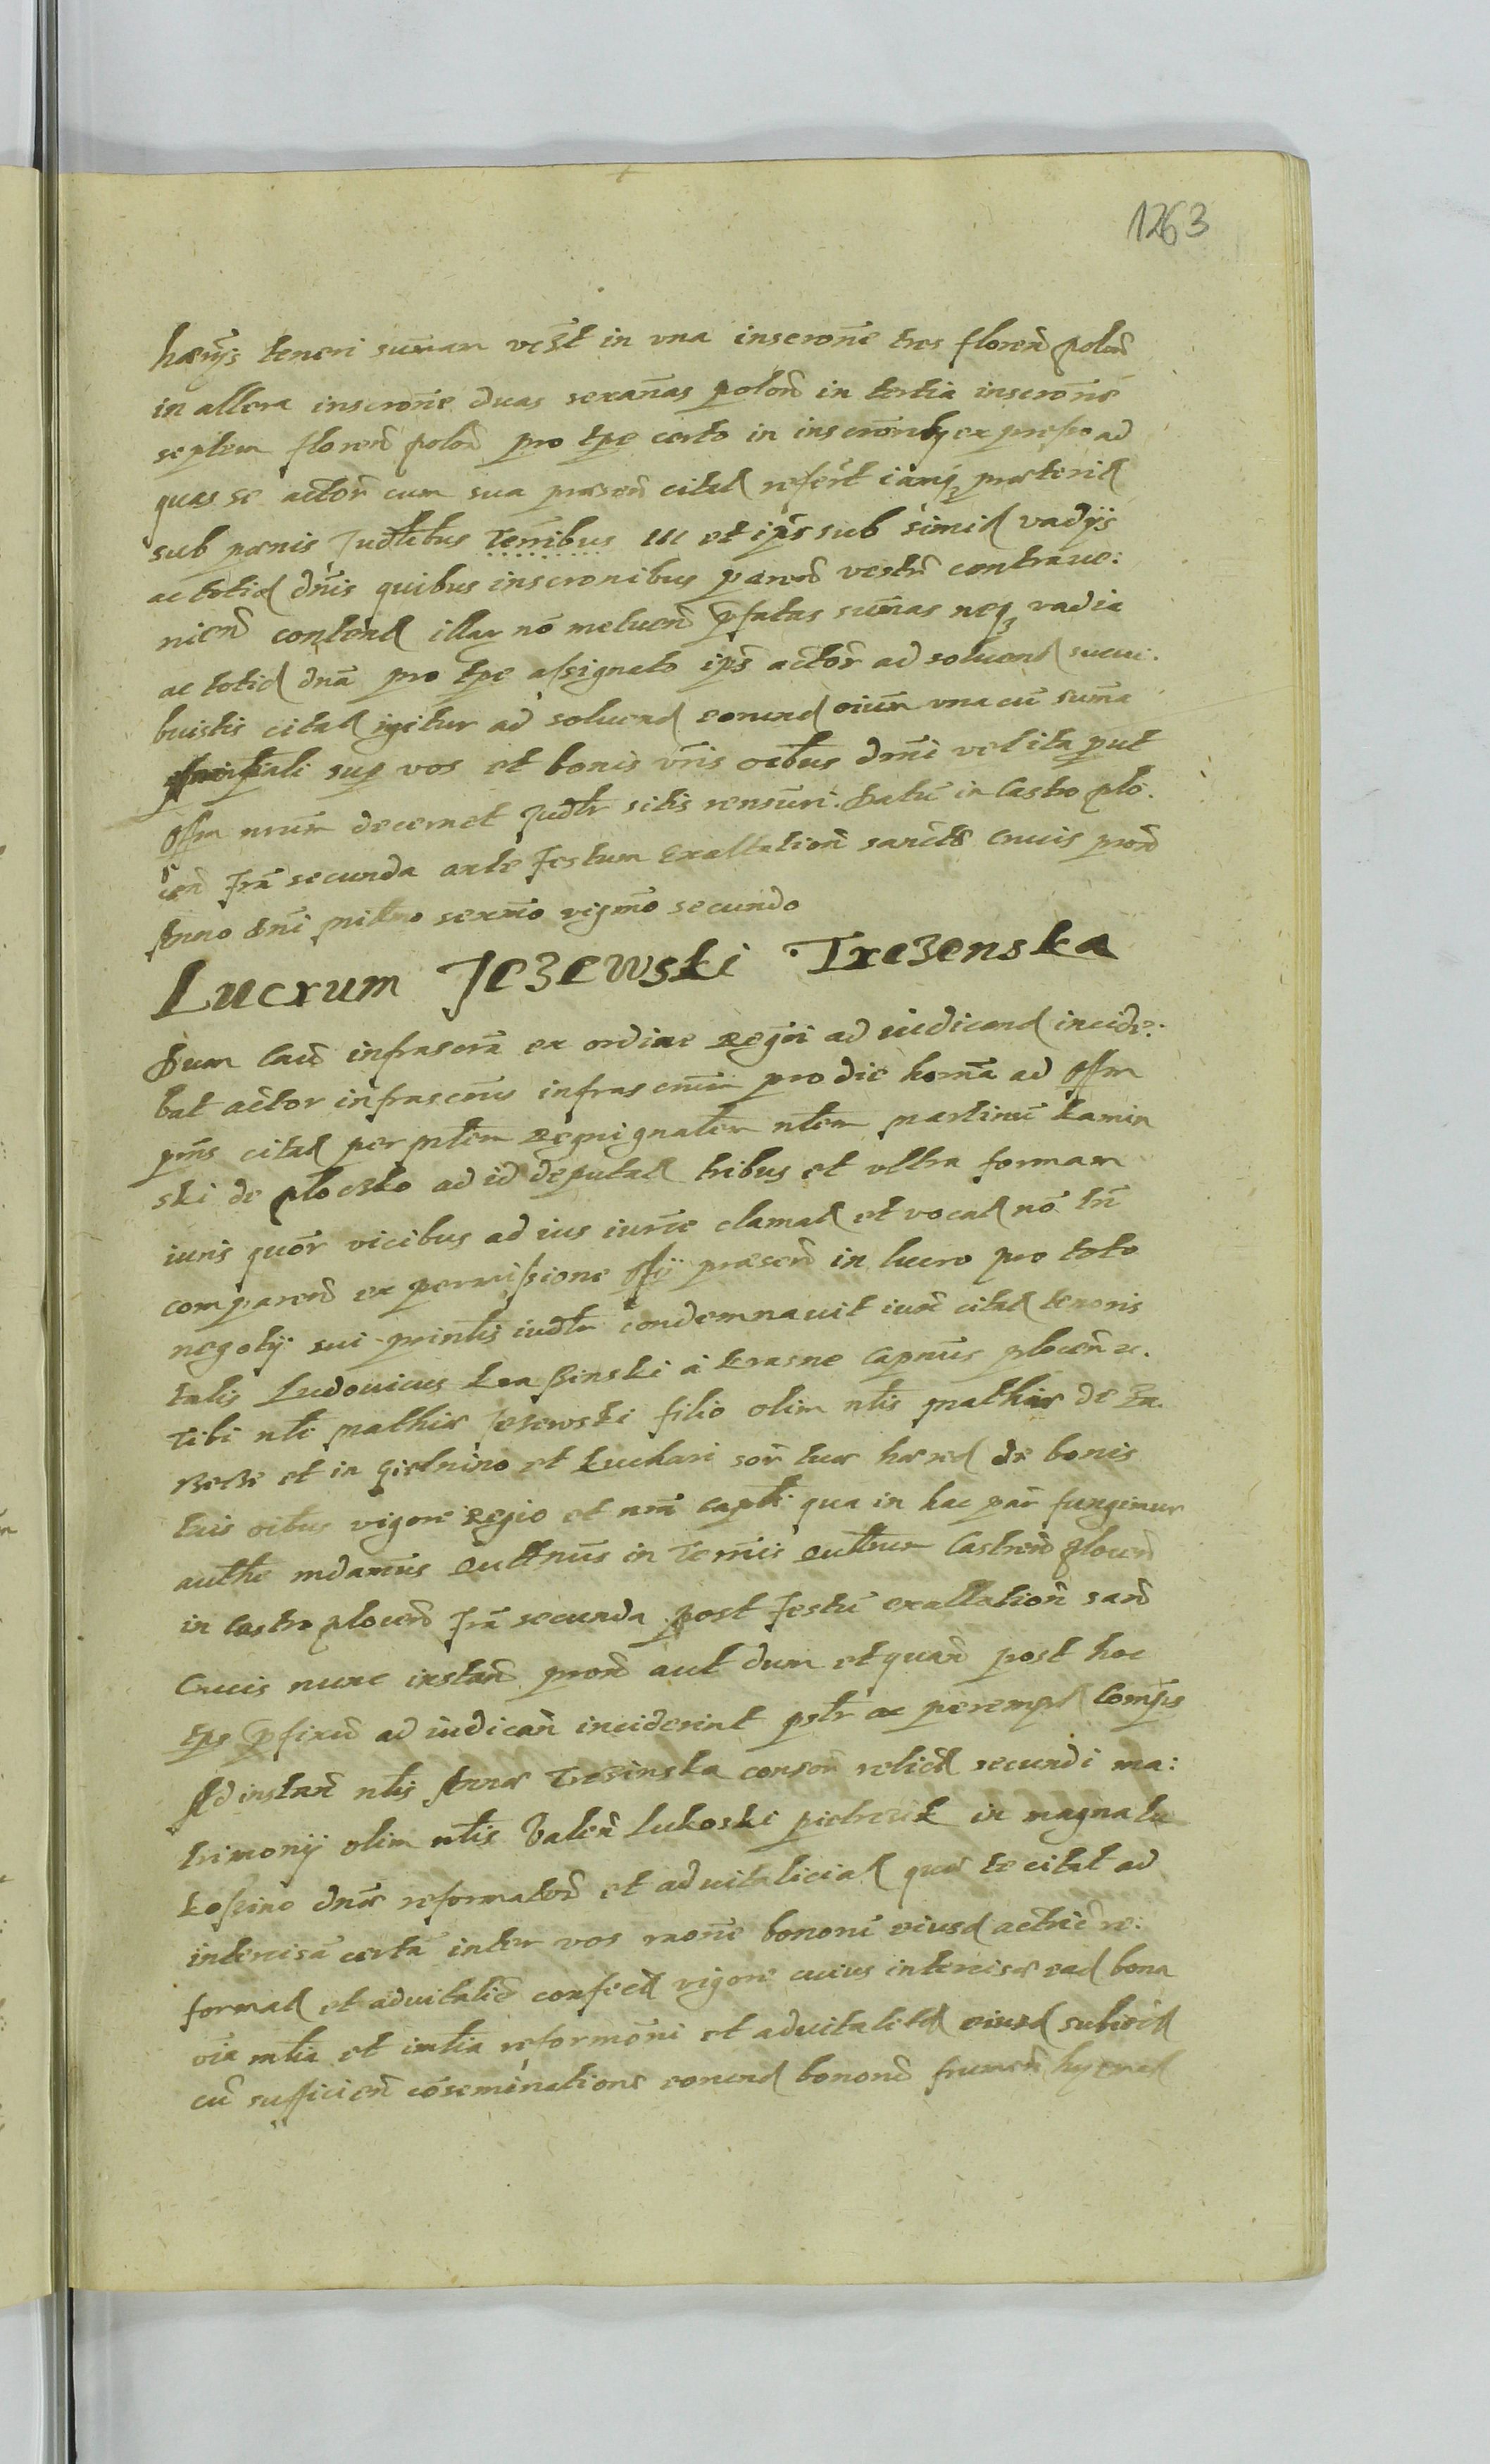 1263
hænȳs teneri sum̄am vest in vna inscrone tres floren polon
in altera inscrone duas sexanas polon in tertia inscrone
septem floren polon pro tpe certo in inscronibus expresso ad
quas se actor cum sua præsen citat refert iamq præterit
sub pœnis Judlibus Ternibus III et ips sub simil vadijs
ac totid dnis quibus inscronibus paren vestr contraue:
nien content illar nō metuen pfatas sum̄as neq vadia
ac totid dna pro tpe assignato ips actor ad soluend
buistis citat igitur ad soluend eorund oium vna cū sum̄a
prinpali sup vos et bonis vris oibus dmi vel ita put
Offm nrum decernet Judlr sitis rensuri. Datū in Castro plo.
cen fra secunda ante festum Exaltation sanctæ Crucis pron
Anno Dni millmo sexmo vigmo secundo
Lucrum Jezewski Trezenska
Dum Caus infrascra ex ordine Regri ad iudicand incide:
bat actor infrascrus infrascrum pro die horna ad Offm
pns citat per mltem Regni gnalem nlem Martinū Kamin
ski de Plocsko ad id deputat tribus et vltra formam
iuris quor vicibus ad ius iurne clamat et vocat nō tn
comparen ex permissione Offij præsen in lucro pro toto
negotij sui prinlis iudlr condemnauit iuxta citat tenoris
talis Ludouicus Krasinski à Krasne Capnus plocen etc.
Tibi nli Mathiæ Jezewski filio olim nlis Mathiæ de
et in Gielnino et Kuchari sor tuæ hæred de bonis
tuis oibus vigore Regio et nra captli qua in hac par fungimur
authe mdamus Quttnus in Ternis Quttnm Castren plocen
in Castro plocen fra secunda post festū exaltation san
Crucis nunc instan pron aut dum et quan post hoc
tps pfixū ad iudican inciderint pslr ac perempt Compis
Ad instan nlis Annæ Trezinska consor relict secundi ma:
trimonij olim nlis Valen Lukoski in magna
dnæ reformator et aduitaliciat quæ te citat ad
intercisā certā inter vos raone bonorū eiusd actric re:
format et aduitalic confect vigore cuius intercisæ ead bona
oia mlia et imlia reformoni et aduitalitat eiusd subiect
cū sufficien coseminatione eorund bonorū frumen hyemal